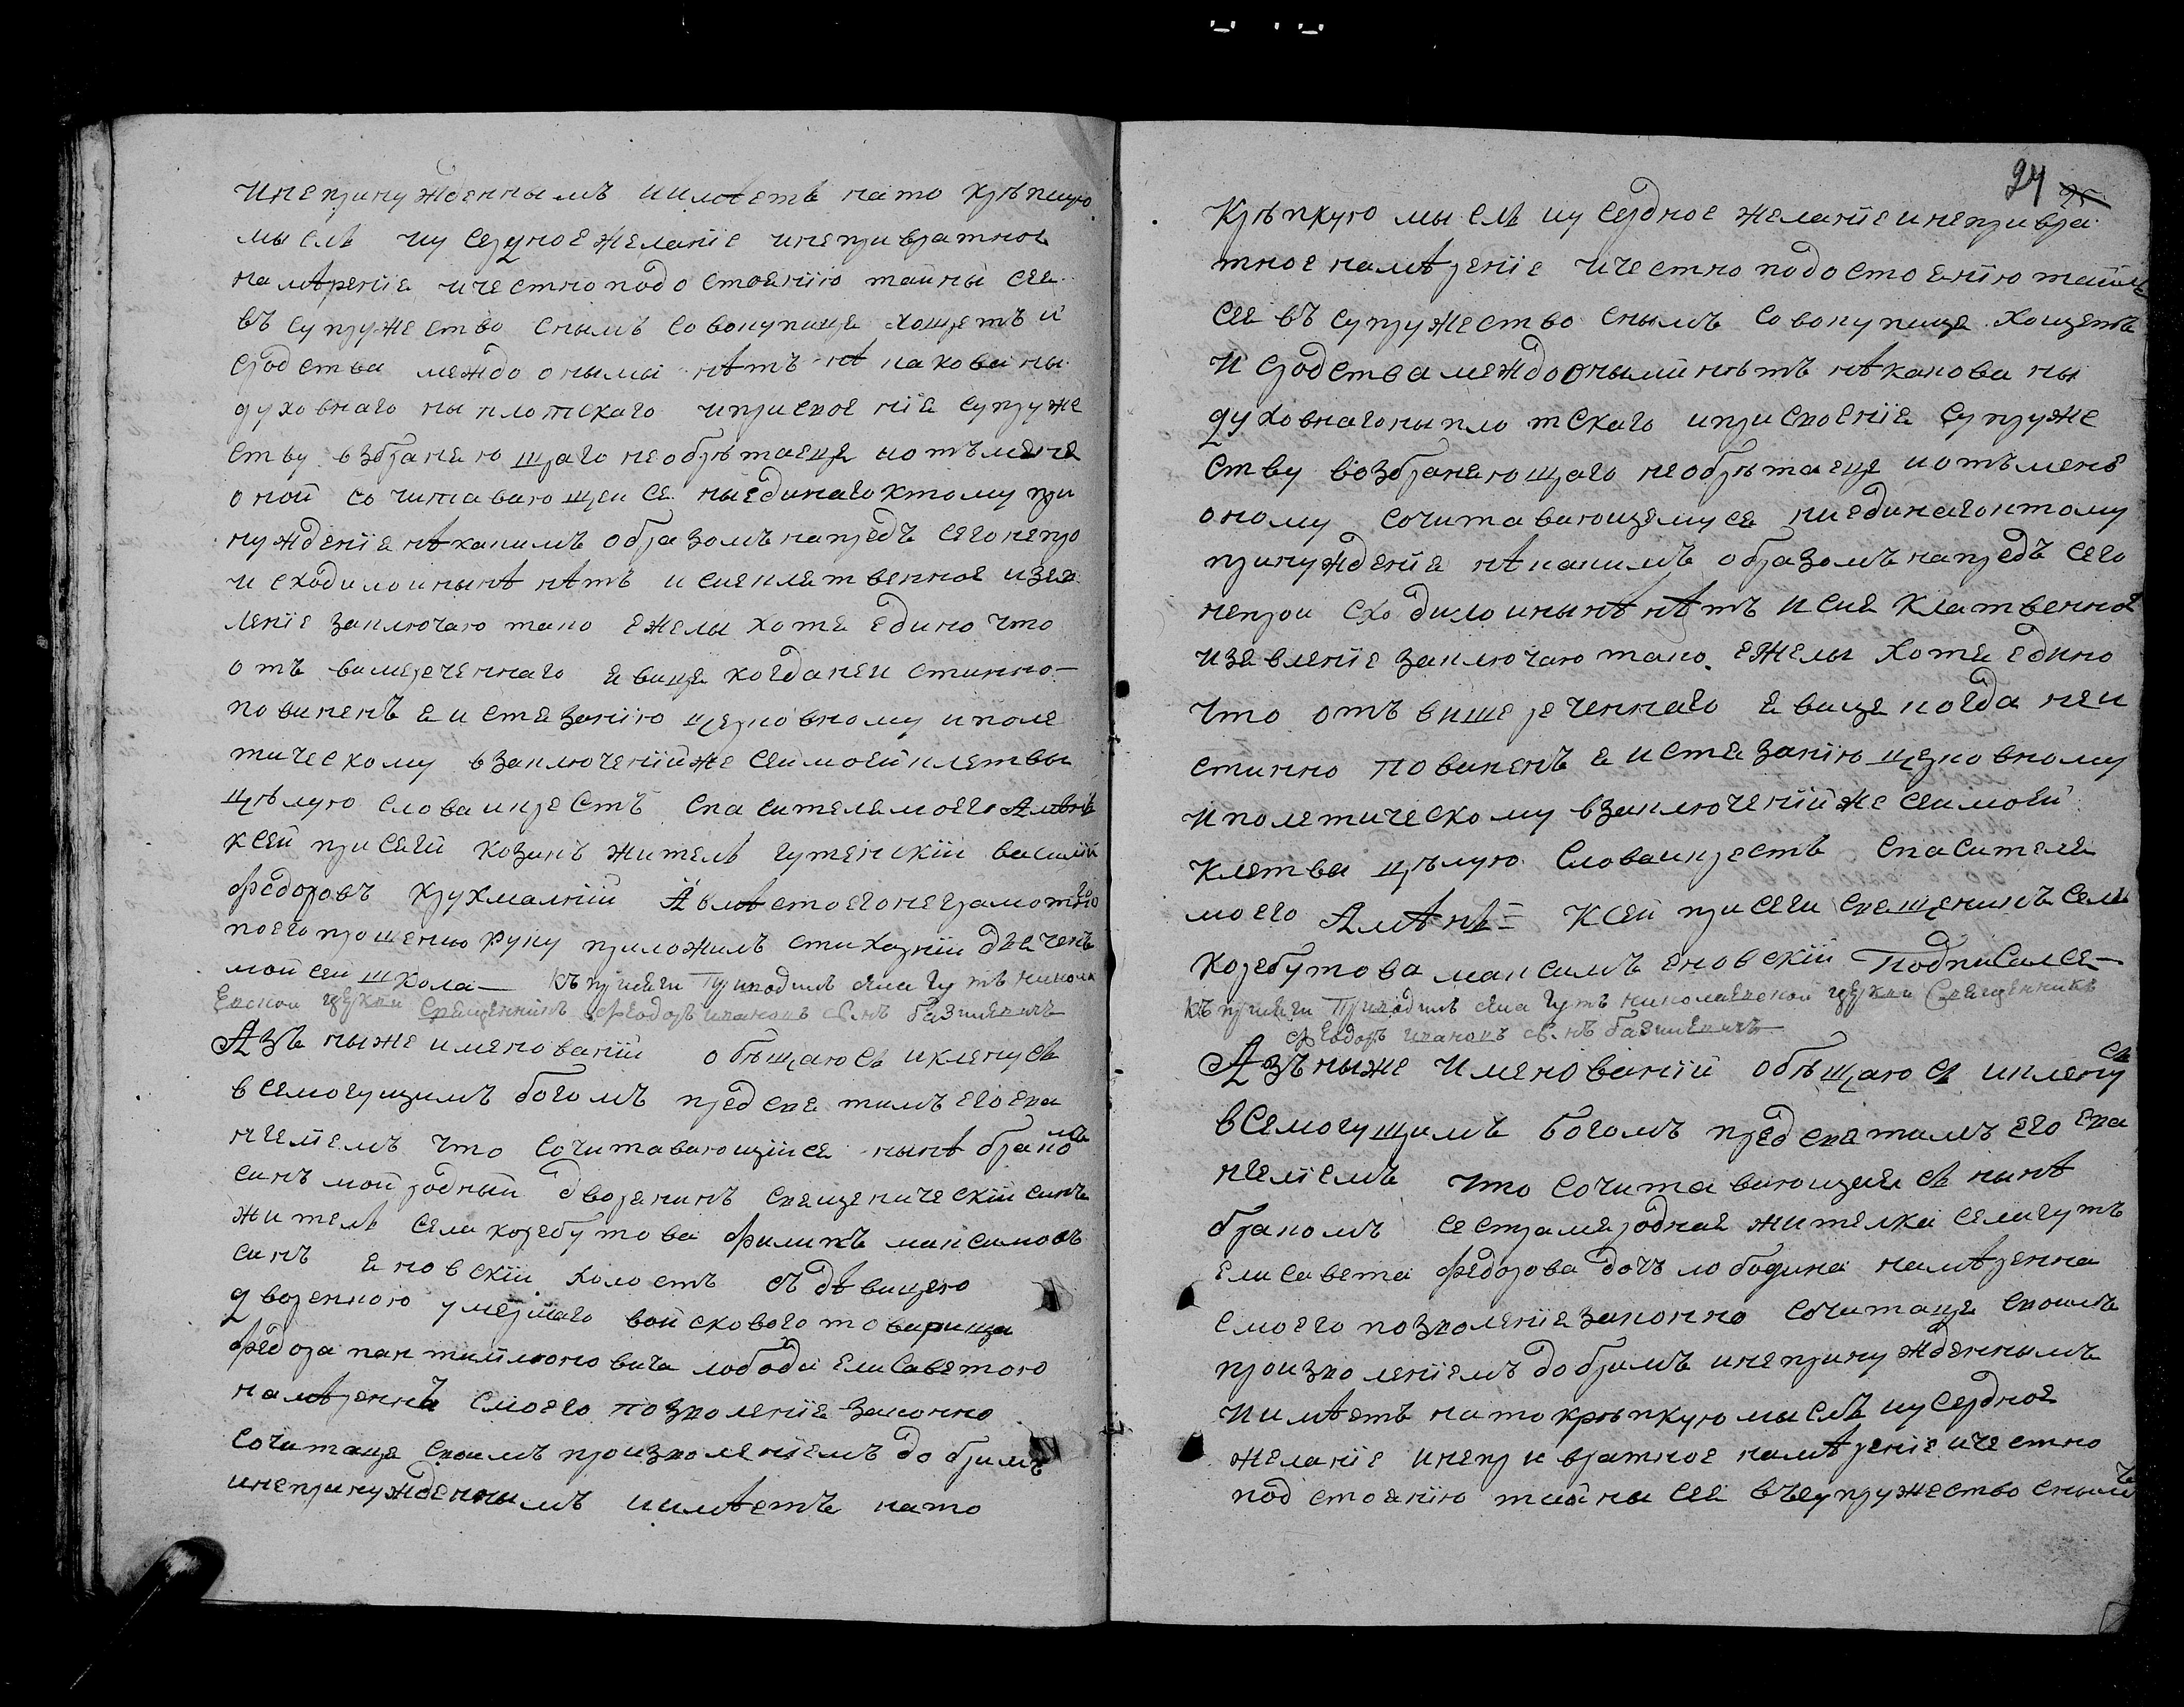 инепринужденнымъ иимѣетъ нато крѣпкую
мысль иусердное желанїе инепривратное
намѣренїе ичестноподостоянїю тайны сея
въ супружество снымъ совокупица хощетъ и
сродства междо оными нѣтъ нѣ накова ны
духовнаго ны плотскаго иприсвоенїя супруже
ству взбраняющаго необрѣтаеця иотъ мене
оной сочитавающейся ныединаго ктому при
нужденїя нѣкакимъ образомъ напредъ сего непро
исходило инынѣ нѣтъ и сие клятвенное изея
ленїе заключаю тако ежелы хотя едино что
отъ вишереченнаго явица когда неистинно
повиненъ я истязанїю церковному и поле
тическому взаключенїй же сей моей клятвы
цѣлую слова икрестъ спасителя моего Аминь
ксей присяги козакъ житель гутенскїй василїй
федоровъ крухмалнїй Авмѣсто его неграмотнаго
поего прошению руку приложилъ стихарнїй дячекъ
мойсей школа къ присяги приводилъ села гутъ никола
евской церкви священникъ феодоръ ивановъ с͠нъ базилевичъ
Азъ ныже именованїй обѣщаюсь иклянусь
всемогущимъ богомъ предсвятымъ его еван
гелїемъ что сочитавающїйся нынѣ бракомъ
синъ мой родный дворянинъ священическїй синъ
житель села коребутова филипъ максимовъ
синъ яновскїй холостъ съ дѣвицею
дворянкою умершаго войскового товарища
федора пантилимоновича лободи елисаветою
намѣренъ смоего позволенїя законно
сочитаця своимъ произволенїемъ добримъ
инепринужденнымъ иимѣетъ нато
24 25
крѣпкую мысль иусердное желанїе инеприврат
тное намѣренїе ичестно подостоянїю тайны
сея въ супружество снымъ совокупица хощетъ
и сродства междо оными нѣтъ нѣкакова ны
духовнаго ны плотскаго иприсвоенїя супруже
ству возбраняющаго необрѣтаеця иотъ мене
оному сочитавающемуся ниединаго ктому
принужденїя нѣкакимъ образомъ напредъ сего
непроисходило инынѣ нѣтъ и сие клятвенное
изевленїе заключаю тако ежелы хотя едино
что отъ вишереченнаго явица когда неи
стинно повиненъ я истязанїю церковному
и полетическому взаключенїй же сей моей
клятвы цѣлую слова икрестъ спасителя
моего Аминь ксей присяги священикъ села
коребутова максимъ яновскїй подписался
къ присяги приводилъ села гутъ николаевской церкви священникъ
феодоръ ивановъ с͠нъ базилевичъ
Азъ ныже именованїй обѣщаюсь иклянусь
всемогущимъ богомъ предсвятымъ его еван
гелїемъ что сочитавающаяся нынѣ
бракомъ сестра мя родная жителка села гутъ
елисавета федорова дочъ лободина намѣренна
смоего позволенїя законно сочитаця своимъ
произволенїемъ добримъ инепринужденнымъ
иимѣетъ нато крѣпкую мысль иусердное
желанїе инепривратное намѣренїе ичестно
подстоянїю тайны сея въ супружество снымъ